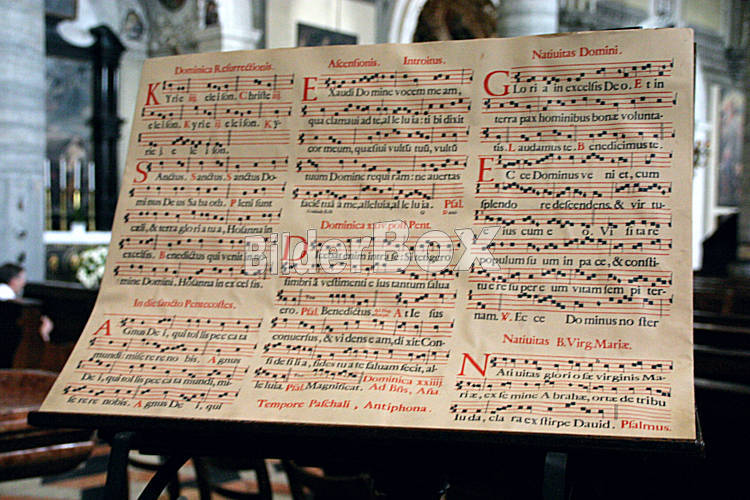 Dominica Resurrectionis.
KYrie iij. eleison. Christe iij.
eleison. Kyrie iij. eleison. Ky-
rie j. e le ison.
SAnctus. Sanctus. Sanctus Do-
minus Deus Sa ba oth. Pleni sunt
cæli, & terra glo ri a tu a, Hosanna in
excelsis. Benedictus qui venit in
mine Domini, Hosanna in ex cel sis.
In die sancto Pentecostes.
AGnus De i, qui tol lis pec ca ta
mundi: mi se re re no bis. Agnus
De i, qui tollis pec ca ta mundi, mi-
se re re nobis. Agnus De i, qui
Ascensionis. Introitus.
EXaudi Do mine vocem me am,
qua clama ui ad te, al le lu ia: ti bi dixit
cor meum, quæsiui vultū tuū, vultū
tuum Domine requi rām: ne auertas
faciē tuā à me, alleluia, al le lu ia. Psal.
Dominica xxiv. post Pent.
timbri ā vestimenti e ius tantum salua
ero. Psal. Benedictus At Ie sus
conuersus, & vi dens e am, di xit: Con-
fi de fi li a, fides tu a te saluam fecit, al-
le luia. Psal. Magnificat. Dominica xxiiij.
Ad Bñs, Aña.
Tempore Paschali, Antiphona.
Natiuitas Domini.
GLo ri a in excelsis De o. Et in
terra pax hominibus bonæ volunta-
tis. Laudamus te. Benedicimus te.
ECce Dominus ve ni et, cum
splendo re descendens, & vir tu-
tus ius cum e o. Vi si ta re
populum su um in pa ce, & consti-
tu e re su per e um vitam sem pi ter-
nam. ℣. Ec ce Do minus no ster
Natiuitas B. Virg. Mariæ.
NAti uitas glori o sæ virginis Ma-
ri æ, ex se mine A brahæ, ortæ de tribu
Iu da, cla ra ex stirpe Dauid. Psalmus.
BilderBOX